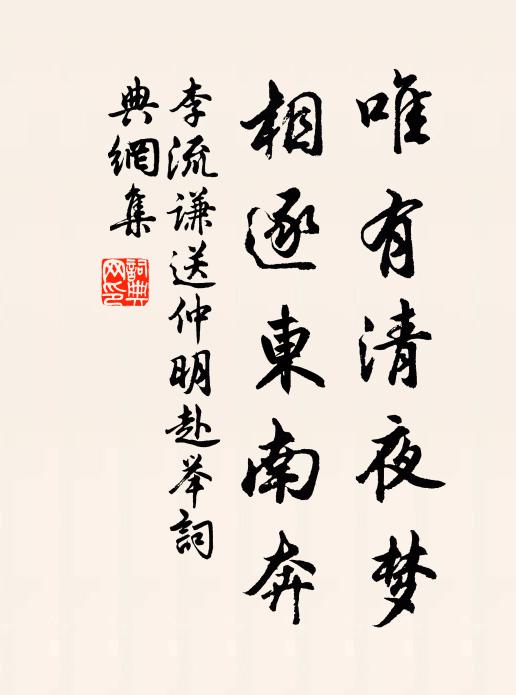 唯有清夜梦
相逐東南奔
李流谦送仲明赴举詞
典網集
詞典网印